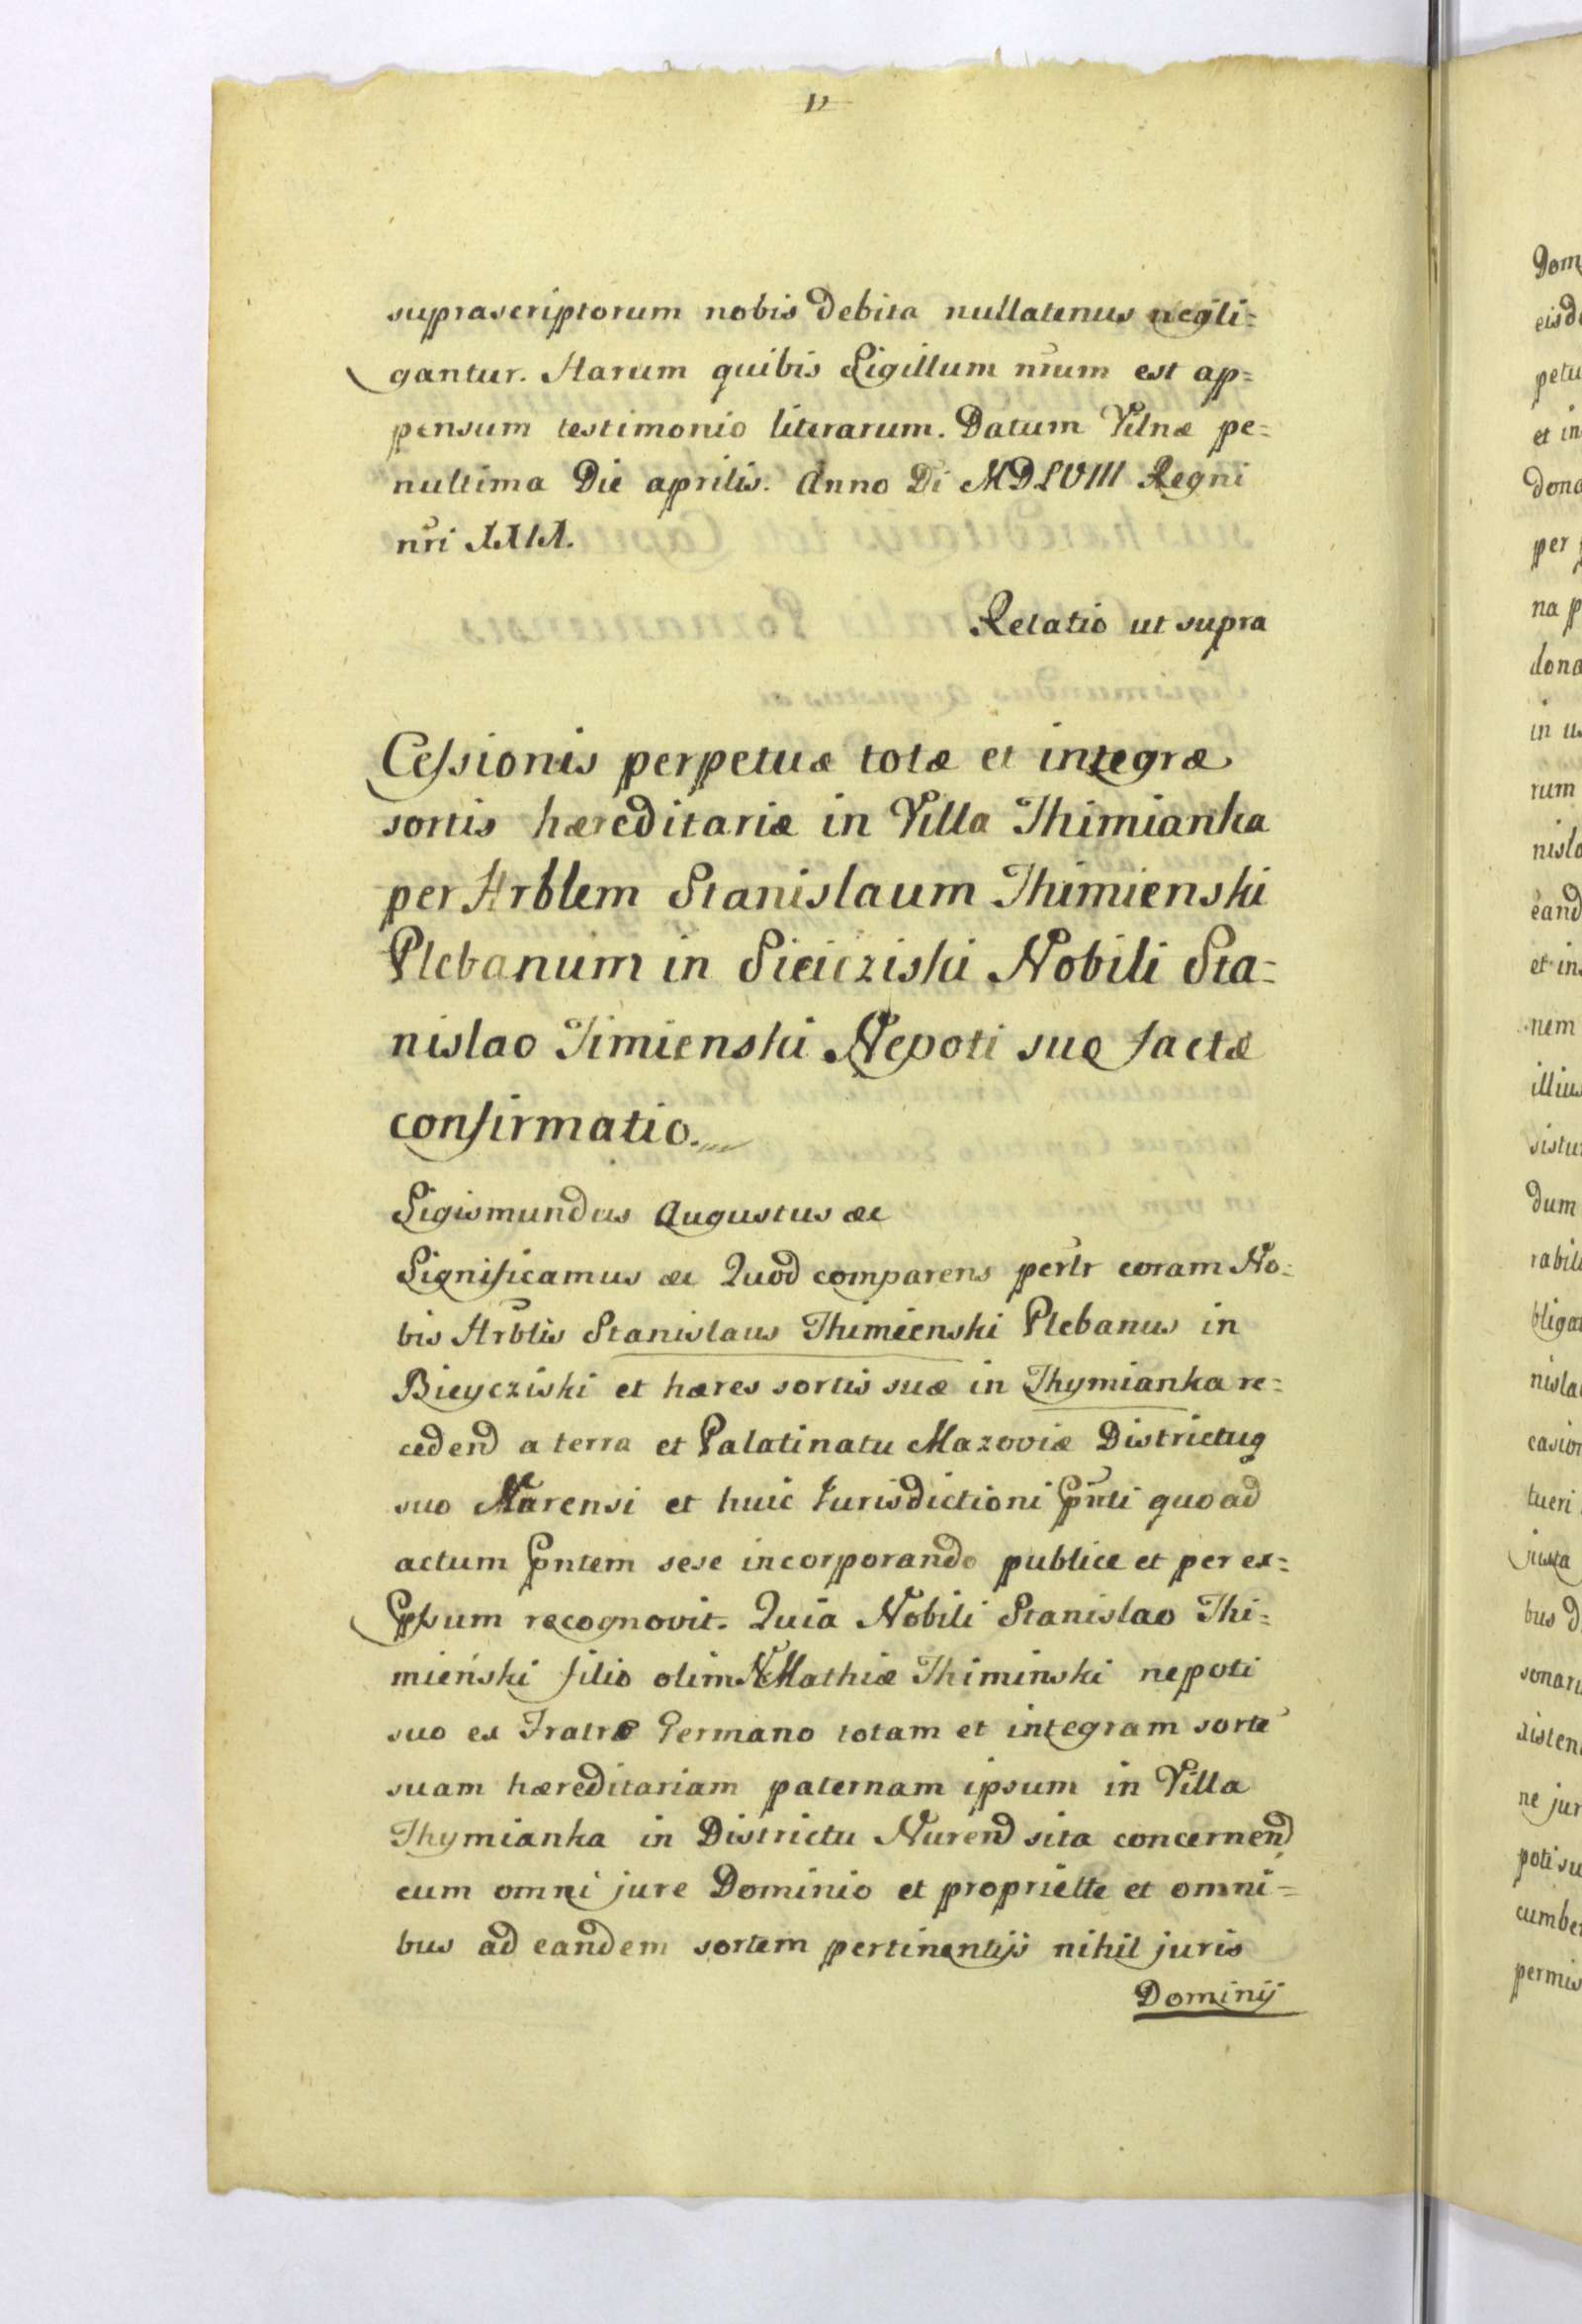 suprascriptorum nobis debita nullatenus negli=
gantur. Harum quibis Sigillum nrum est ap=
pensum testimonio literarum. Datum Vilnæ pe=
nultima Die aprilis. Anno Di MDLVIII Regni
nri XXIX.
Relatio ut supra
Cessionis perpetuæ totæ et integræ
sortis hæreditariæ in Villa Thimianka
per Hrblem Stanislaum Thimienski
Plebanum in Sieicziski Nobili Sta=
nislao Timienski Nepoti suo factæ
confirmatio.
Sigismundus Augustus æc
Significamus æc Quod comparens pertr coram No=
bis Hrblis Stanislaus Thimienski Plebanus in
Bieycziski et hæres sortis suæ in Thymianka re=
cedend a terra et Palatinatu Mazoviæ Districtuq
suo Narensi et huic Jurisdictioni pnti quoad
actum pntem sese incorporando publice et per ex=
pssum recognovit. Quia Nobili Stanislao Thi=
mieński filio olim N Mathiæ Thiminski nepoti
suo ex Fratre Germano totam et integram sorte
suam hæreditariam paternam ipsum in Villa
Thymianka in Districtu Nurend sita concernend
cum omni jure Dominio et propriette et omni=
bus ad eandem sortem pertinentijs nihil juris
Dominij
Dom
eisd
petu
et in
dona
per
na p
dona
in u
rum
nisla
eand
et in
nem
illius
sistu
dum
rabili
bliga
nisla
casion
tueri
juxta
bus d
sonar
xisten
ne jur
poti su
cumbe
permis